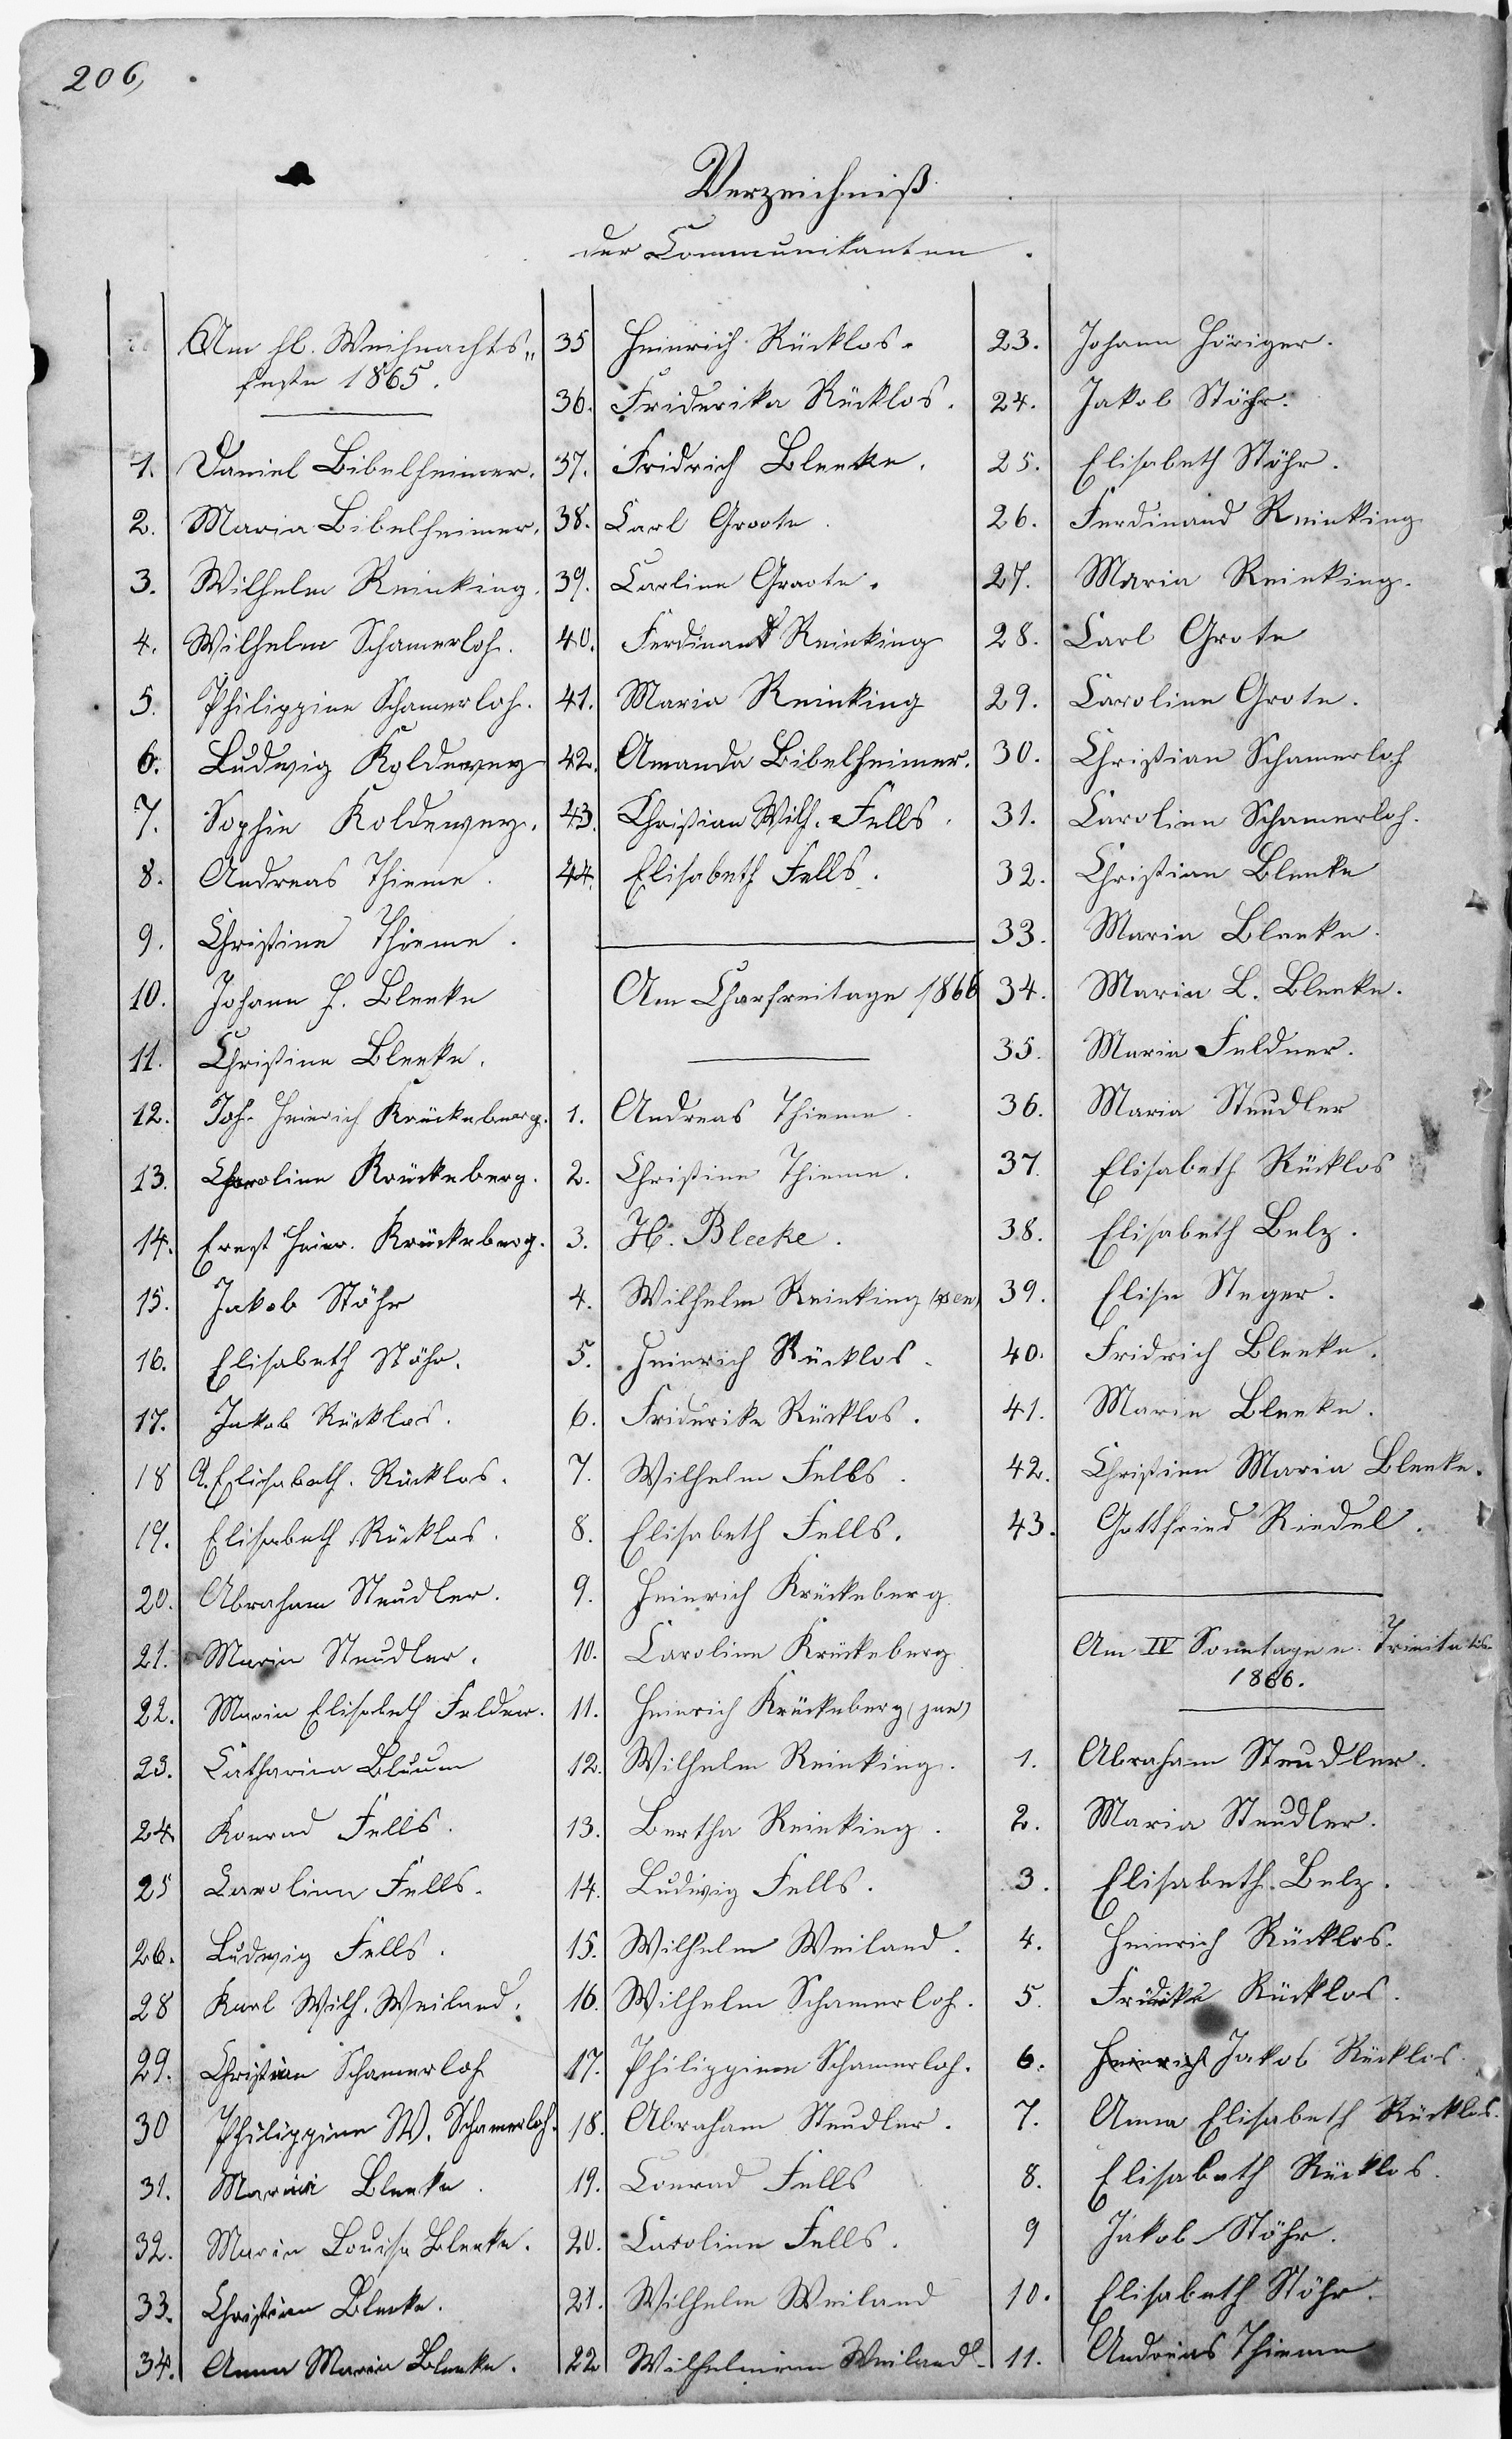 206,
Verzeichniß
der Communikanten.
Am hl. Weihnachts„
feste 1865.
1. Daniel Bibelheimer.
2. Maria Bibelheimer.
3. Wilhelm Reinking.
4. Wilhelm Schamerloh.
5. Philippine Schamerloh.
6. Ludwig Koldewey
7. Sophie Koldewey.
8. Andreas Thieme.
9. Christine Thieme.
10. Johann H. Bleeke
11. Christine Bleeke.
12. Joh. Heinrich Krückeberg.
13. Charoline Krückeberg.
14. Ernst Heinr. Krückeberg.
15. Jakob Stöhr
16. Elisabeth Stöhr.
17. Jakob Rücklos.
18 A. Elisabeth. Rücklos.
19. Elisabeth Rücklos.
20. Abraham Steudler.
21. Maria Steudler.
22. Maria Elisabeth Feldner.
23. Catharina Bluum
24. Konrad Fells.
25 Caroline Fells.
26. Ludwig Fells.
28 Karl Wilh. Weiland.
29. Christian Schamerloh
30 Philippine W. Schamerloh.
31. Maria Bleeke.
32. Maria Louise Bleeke.
33. Christian Bleeke.
34. Anna Maria Bleeke.
35 Heinrich Rücklos.
36. Friderika Rücklos.
37. Fridrich Bleeke.
38. Carl Groote.
39. Carline Groote.
40. Ferdinand Reinking
41. Maria Reinking
42. Amanda Bibelheimer.
43. Christian Wilh. Fells.
44. Elisabeth Fells.
Am Charfreitage 1866
1. Andreas Thieme.
2. Christine Thieme.
3. H. Bleeke.
4. Wilhelm Reinking (sen)
5. Heinrich Rücklos.
6. Friderike Rücklos.
7. Wilhelm Fells.
8. Elisabeth Fells.
9. Heinrich Krückeberg
10. Caroline Krückeberg
11. Heinrich Krückeberg (jun)
12. Wilhelm Reinking.
13. Bertha Reinking.
14. Ludwig Fells.
15. Wilhelm Weiland.
16. Wilhelm Schamerloh.
17. Philippine Schamerloh.
18. Abraham Steudler.
19. Conrad Fells
20. Caroline Fells.
21. Wilhelm Weiland
22 Wilhelmine Weiland.
23. Johann Höriger.
24. Jakob Stöhr.
25. Elisabeth Stöhr.
26. Ferdinand Reinking
27. Maria Reinking.
28. Carl Grote
29. Caroline Grote.
30. Christian Schamerloh
31. Caroline Schamerloh.
32. Christian Bleeke
33. Maria Bleeke.
34. Maria L. Bleeke.
35. Maria Feldner.
36. Maria Steudler
37. Elisabeth Rücklos
38. Elisabeth Belz.
39. Elise Steger.
40. Fridrich Bleeke.
41. Marie Bleeke.
42. Christine Maria Bleeke.
43. Gottfried Riedel.
Am IV Sonntage n. Trinitatis
1866.
1. Abraham Steudler.
2. Maria Steudler.
3. Elisabeth Belz.
4. Heinrich Rücklos.
5. Rücklos.
6. Heinrich Jakob Rücklos.
7. Anna Elisabeth Rücklos.
8. Elisabeth Rücklos.
9 Jakob Stöhr.
10. Elisabeth Stöhr.
11. Andreas Thieme